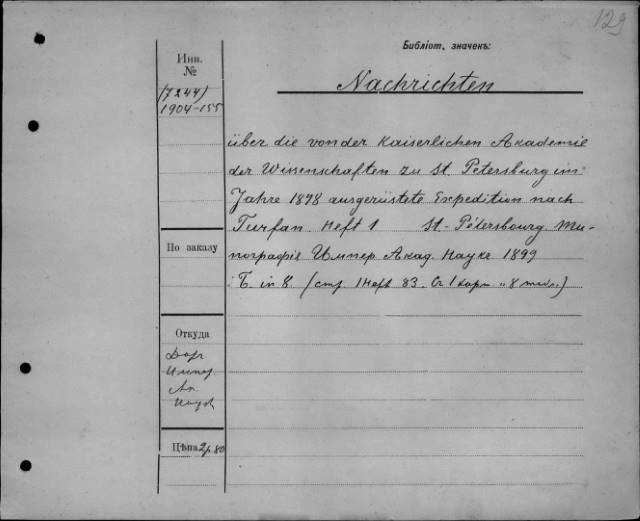 129
Библіот. значекъ:
Инв.
№
Nachrichten
(7244)
1904-155
über die von der Kaiserlichen Akademie
der Wissenschaften zu St. Petersburg im
Jahre 1898 ausgerüstete Expedition nach
Turfan. Heft 1 St.-Pétersbourg. Ти-
пографія Импер. Акад. Наукъ 1899
По заказу
Б. in 8. (стр. 1 Heft 83. Съ 1 карт. 8 табл.)
Откуда
Даръ
Импер.
Ак.
Наукъ
Цѣна 2 р. 80